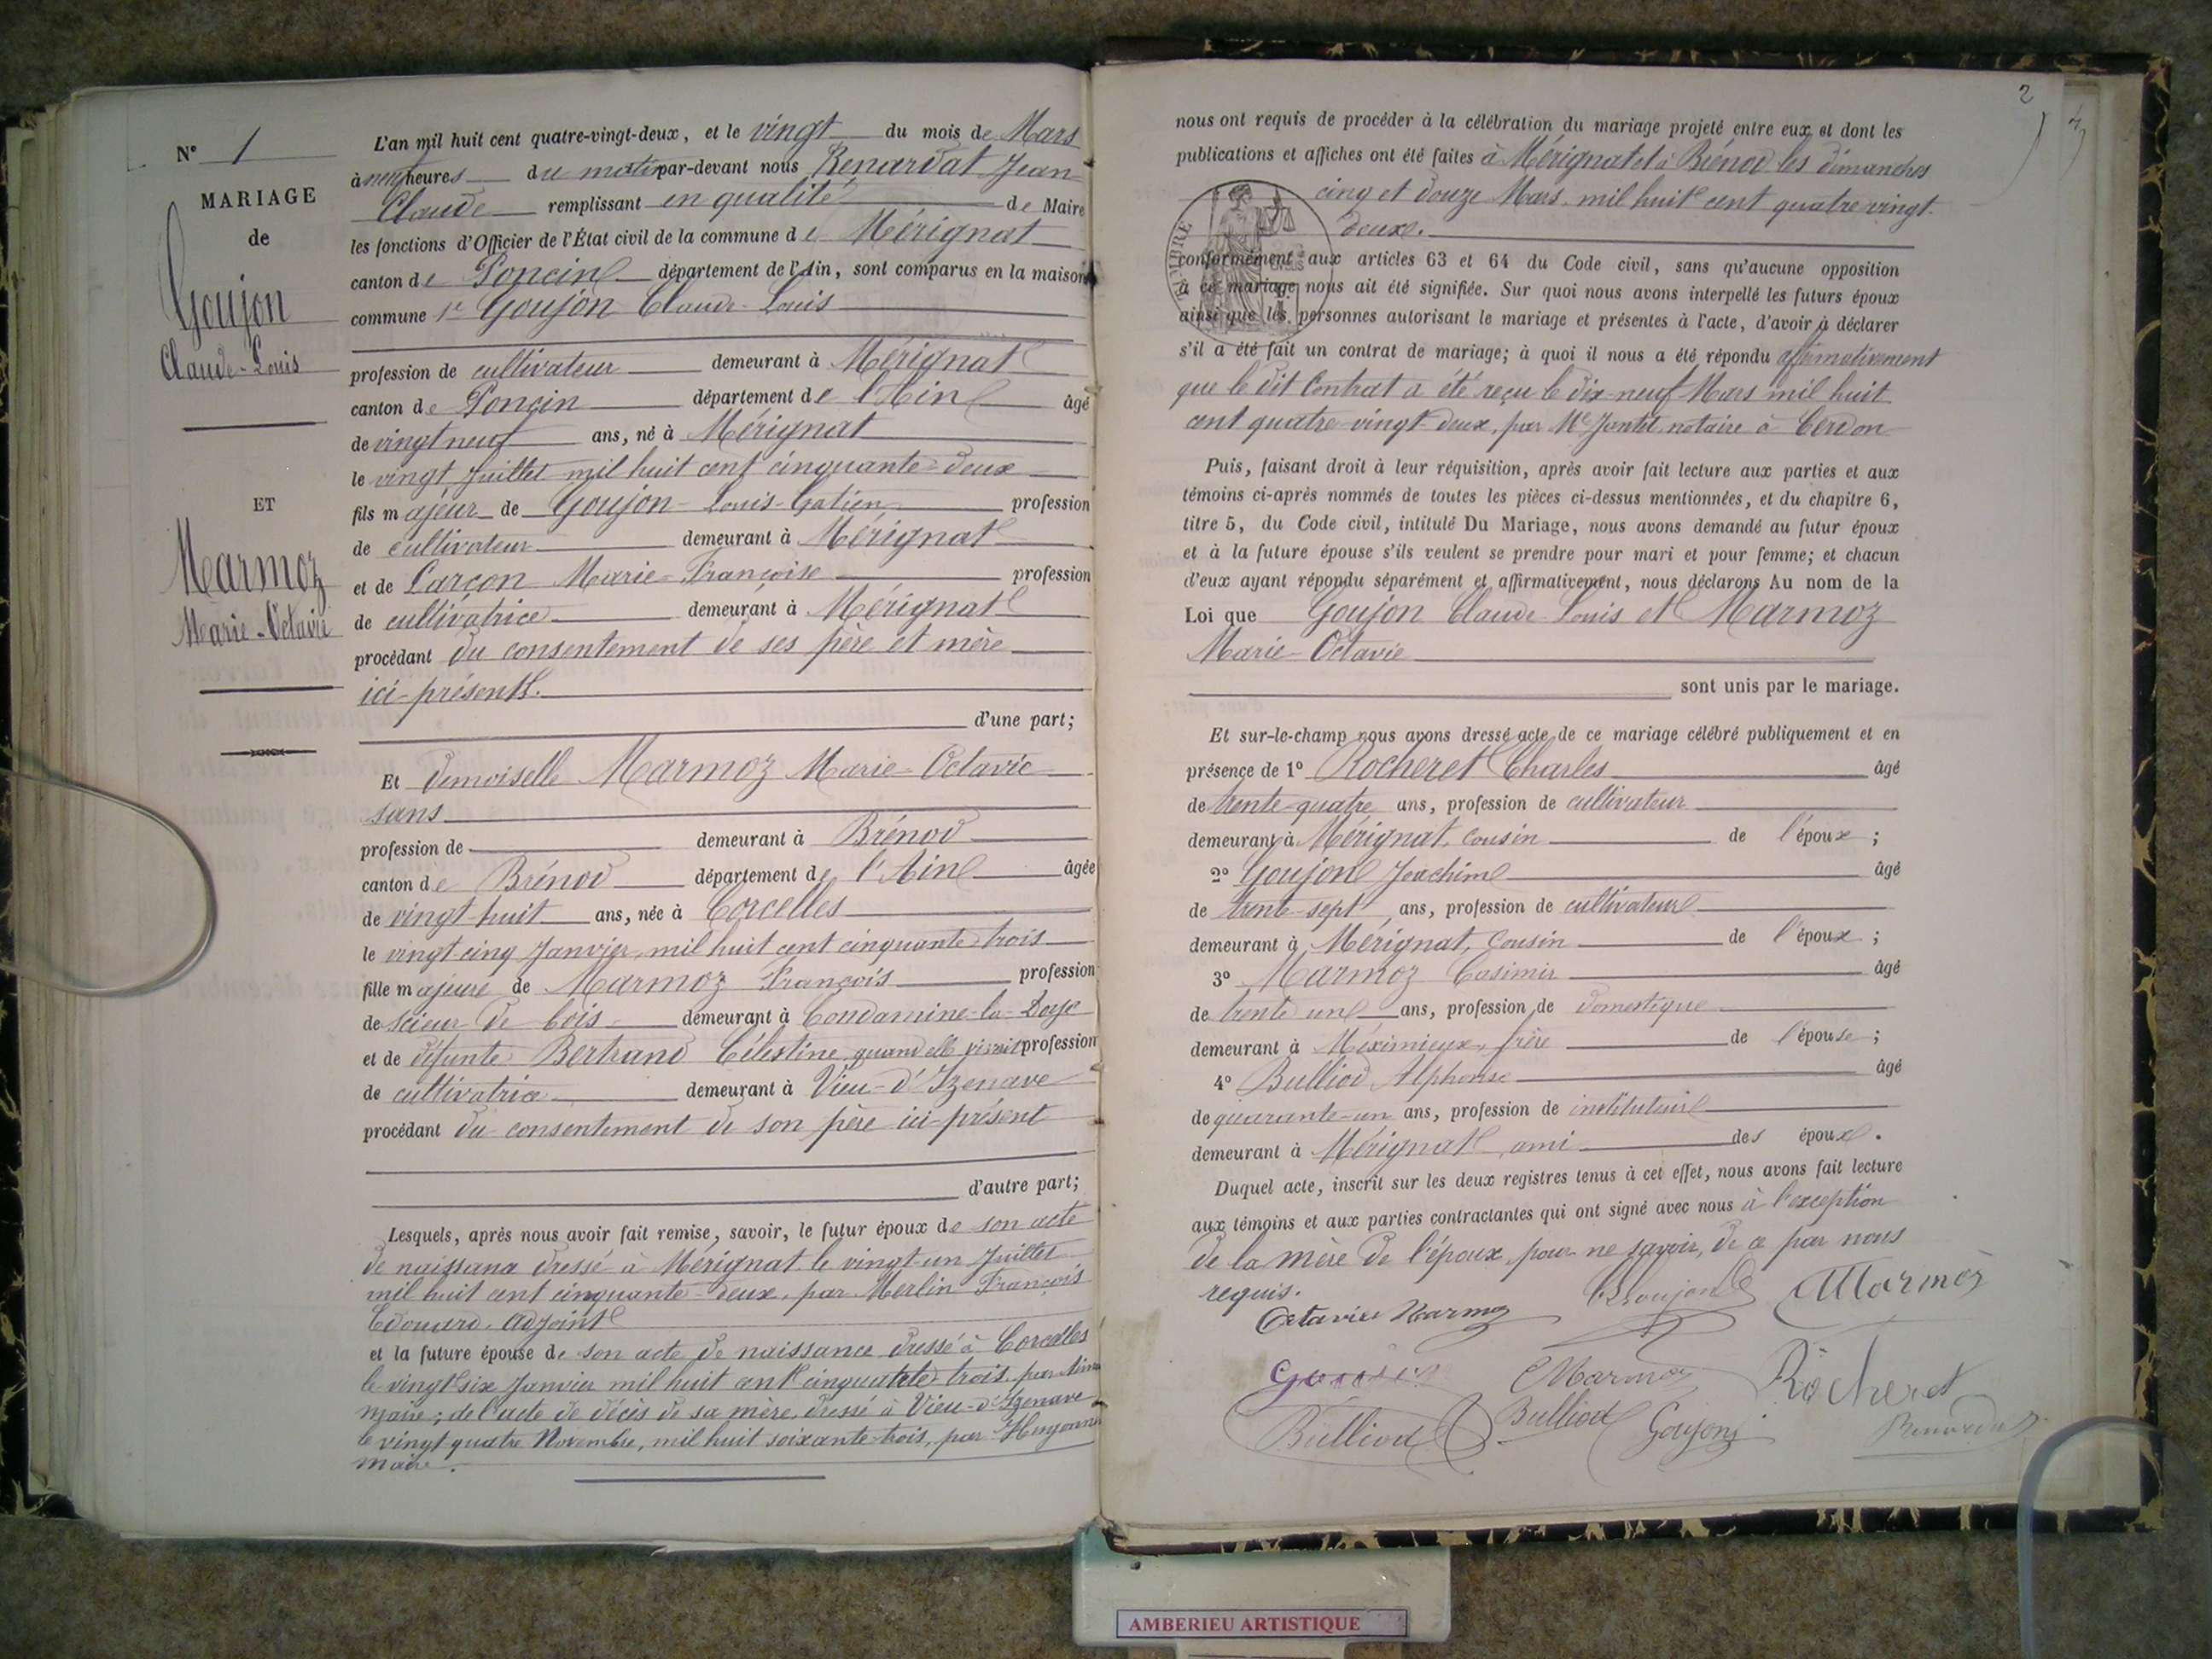 N° 1
MARIAGE
de
Goujon
Claude-Louis
ET
Marmoz
Marie-Octavie
L'an mil huit cent quatre-vingt-deux, et le vingt du mois de Mars
à neuf heures du matin par-devant nous Renardat Jean
Claude remplissant en qualité de Maire
les fonctions d'Officier de l'État civil de la commune de Mérignat
canton de Poncin département de l'Ain, sont comparus en la maison
commune 1° Goujon Claude-Louis
profession de cultivateur demeurant à Mérignat
canton de Poncin département de l'Ain âgé
de vingt neuf ans, né à Mérignat
le vingt Juillet mil huit cent cinquante-deux
fils majeur de Goujon Louis-Gatien profession
de cultivateur demeurant à Mérignat
et de Larçon Marie-Françoise profession
de cultivatrice demeurant à Mérignat
procédant du consentement de ses père et mère
ici-présents.
d'une part;
Et demoiselle Marmoz Marie-Octavie
sans
profession de demeurant à Brénod
canton de Brénod département de l'Ain âgée
de vingt-huit ans, née à Corcelles
le vingt-cinq Janvier mil huit cent cinquante-trois
fille majeure de Marmoz François profession
de scieur de bois demeurant à Condamine-la-Doye
et de défunte Bertrand Célestine quand elle vivait profession
de cultivatrice demeurant à Vieu-d'Izenave
procédant du consentement de son père ici-présent
d'autre part;
Lesquels, après nous avoir fait remise, savoir, le futur époux de son acte
de naissance dressé à Mérignat le vingt-un Juillet
mil huit cent cinquante-deux, par Merlin François
Edouard, adjoint
et la future épouse de son acte de naissance dressé à Corcelles
le vingt six Janvier mil huit cent cinquante trois, par
maire; de l'acte de décès de sa mère, dressé à Vieu-d'Izenave
le vingt-quatre Novembre, mil huit soixante-trois, par
maire.
2
nous ont requis de procéder à la célébration du mariage projeté entre eux et dont les
publications et affiches ont été faites à Mérignat et à Brénod les dimanches
cinq et douze Mars mil huit cent quatre vingt-
deux.
TIMBRE
conformément aux articles 63 et 64 du Code civil, sans qu'aucune opposition
à ce mariage nous ait été signifiée. Sur quoi nous avons interpellé les futurs époux
ainsi que les personnes autorisant le mariage et présentes à l'acte, d'avoir à déclarer
s'il a été fait un contrat de mariage; à quoi il nous a été répondu affirmativement
que le dit Contrat a été reçu le dix-neuf Mars mil huit
cent quatre-vingt-deux, par Me Jantet notaire à Cerdon
Puis, faisant droit à leur réquisition, après avoir fait lecture aux parties et aux
témoins ci-après nommés de toutes les pièces ci-dessus mentionnées, et du chapitre 6,
titre 5, du Code civil, intitulé Du Mariage, nous avons demandé au futur époux
et à la future épouse s'ils veulent se prendre pour mari et pour femme; et chacun
d'eux ayant répondu séparément et affirmativement, nous déclarons Au nom de la
Loi que Goujon Claude-Louis et Marmoz
Marie-Octavie
sont unis par le mariage.
Et sur-le-champ nous avons dressé acte de ce mariage célébré publiquement et en
présence de 1° Rocheret Charles âgé
de trente-quatre ans, profession de cultivateur
demeurant à Mérignat, cousin de l'époux;
2° Goujon Joachim âgé
de trente-sept ans, profession de cultivateur
demeurant à Mérignat, cousin de l'époux;
3° Marmoz Casimir âgé
de trente un ans, profession de domestique
demeurant à Méximieux, frère de l'épouse;
4° Bulliod Alphonse âgé
de quarante-un ans, profession de instituteur
demeurant à Mérignat, ami des époux.
Duquel acte, inscrit sur les deux registres tenus à cet effet, nous avons fait lecture
aux témoins et aux parties contractantes qui ont signé avec nous à l'exception
de la mère de l'époux, pour ne savoir, de ce par nous
requis.
Octavie Marmoz Goujon Marmoz
Goujon Marmoz Rocheret
Bulliod Bulliod Goujon Renardat
AMBERIEU ARTISTIQUE